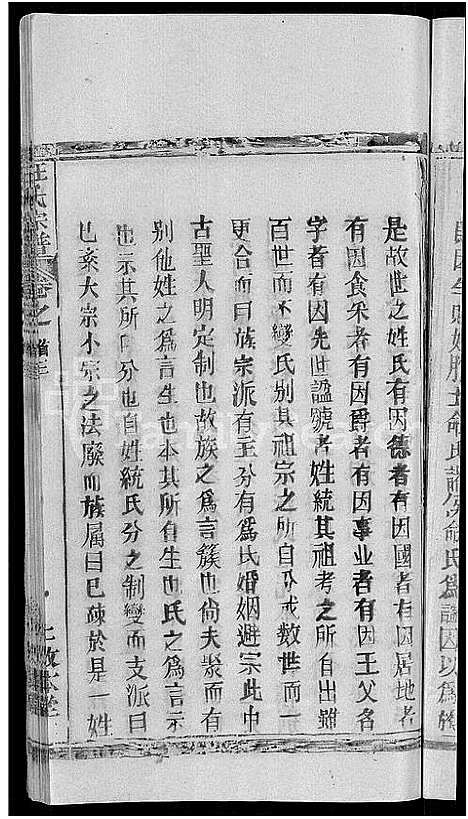 是故世之姓氏有因德者有因國者有因居地者
有因食采者有因爵者有因事业者有因王父名
字者有因先世謚號者姓統其祖考之所自出雖
百世而不變氏别其祖宗之所自分或数世而一
更合而曰族宗派有至分有爲氏婚姻避宗此中
古聖人明定制也故族之爲言簇也尙夫聚而有
别他姓之爲言生也本其所自生也氏之爲言示
也示其所自分也自姓統氏分之制變而支派曰
已紊大宗小宗之法廢而族属曰已疎於是一姓
汪氏宗譜 卷之首